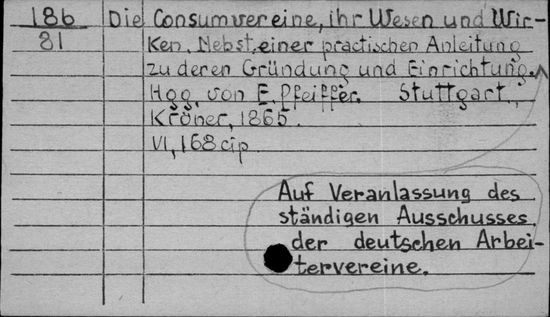 186 Die Consumvereine, ihr Wesen und Wir-
81 ken. Nebst einer practischen Anleitung
zu deren Gründung und Einrichtung.
Hgg. von E. Pfeiffer. Stuttgart,
Kröner, 1865.
VI, 168
Auf Veranlassung des
ständigen Ausschusses
der deutschen Arbei-
tervereine.